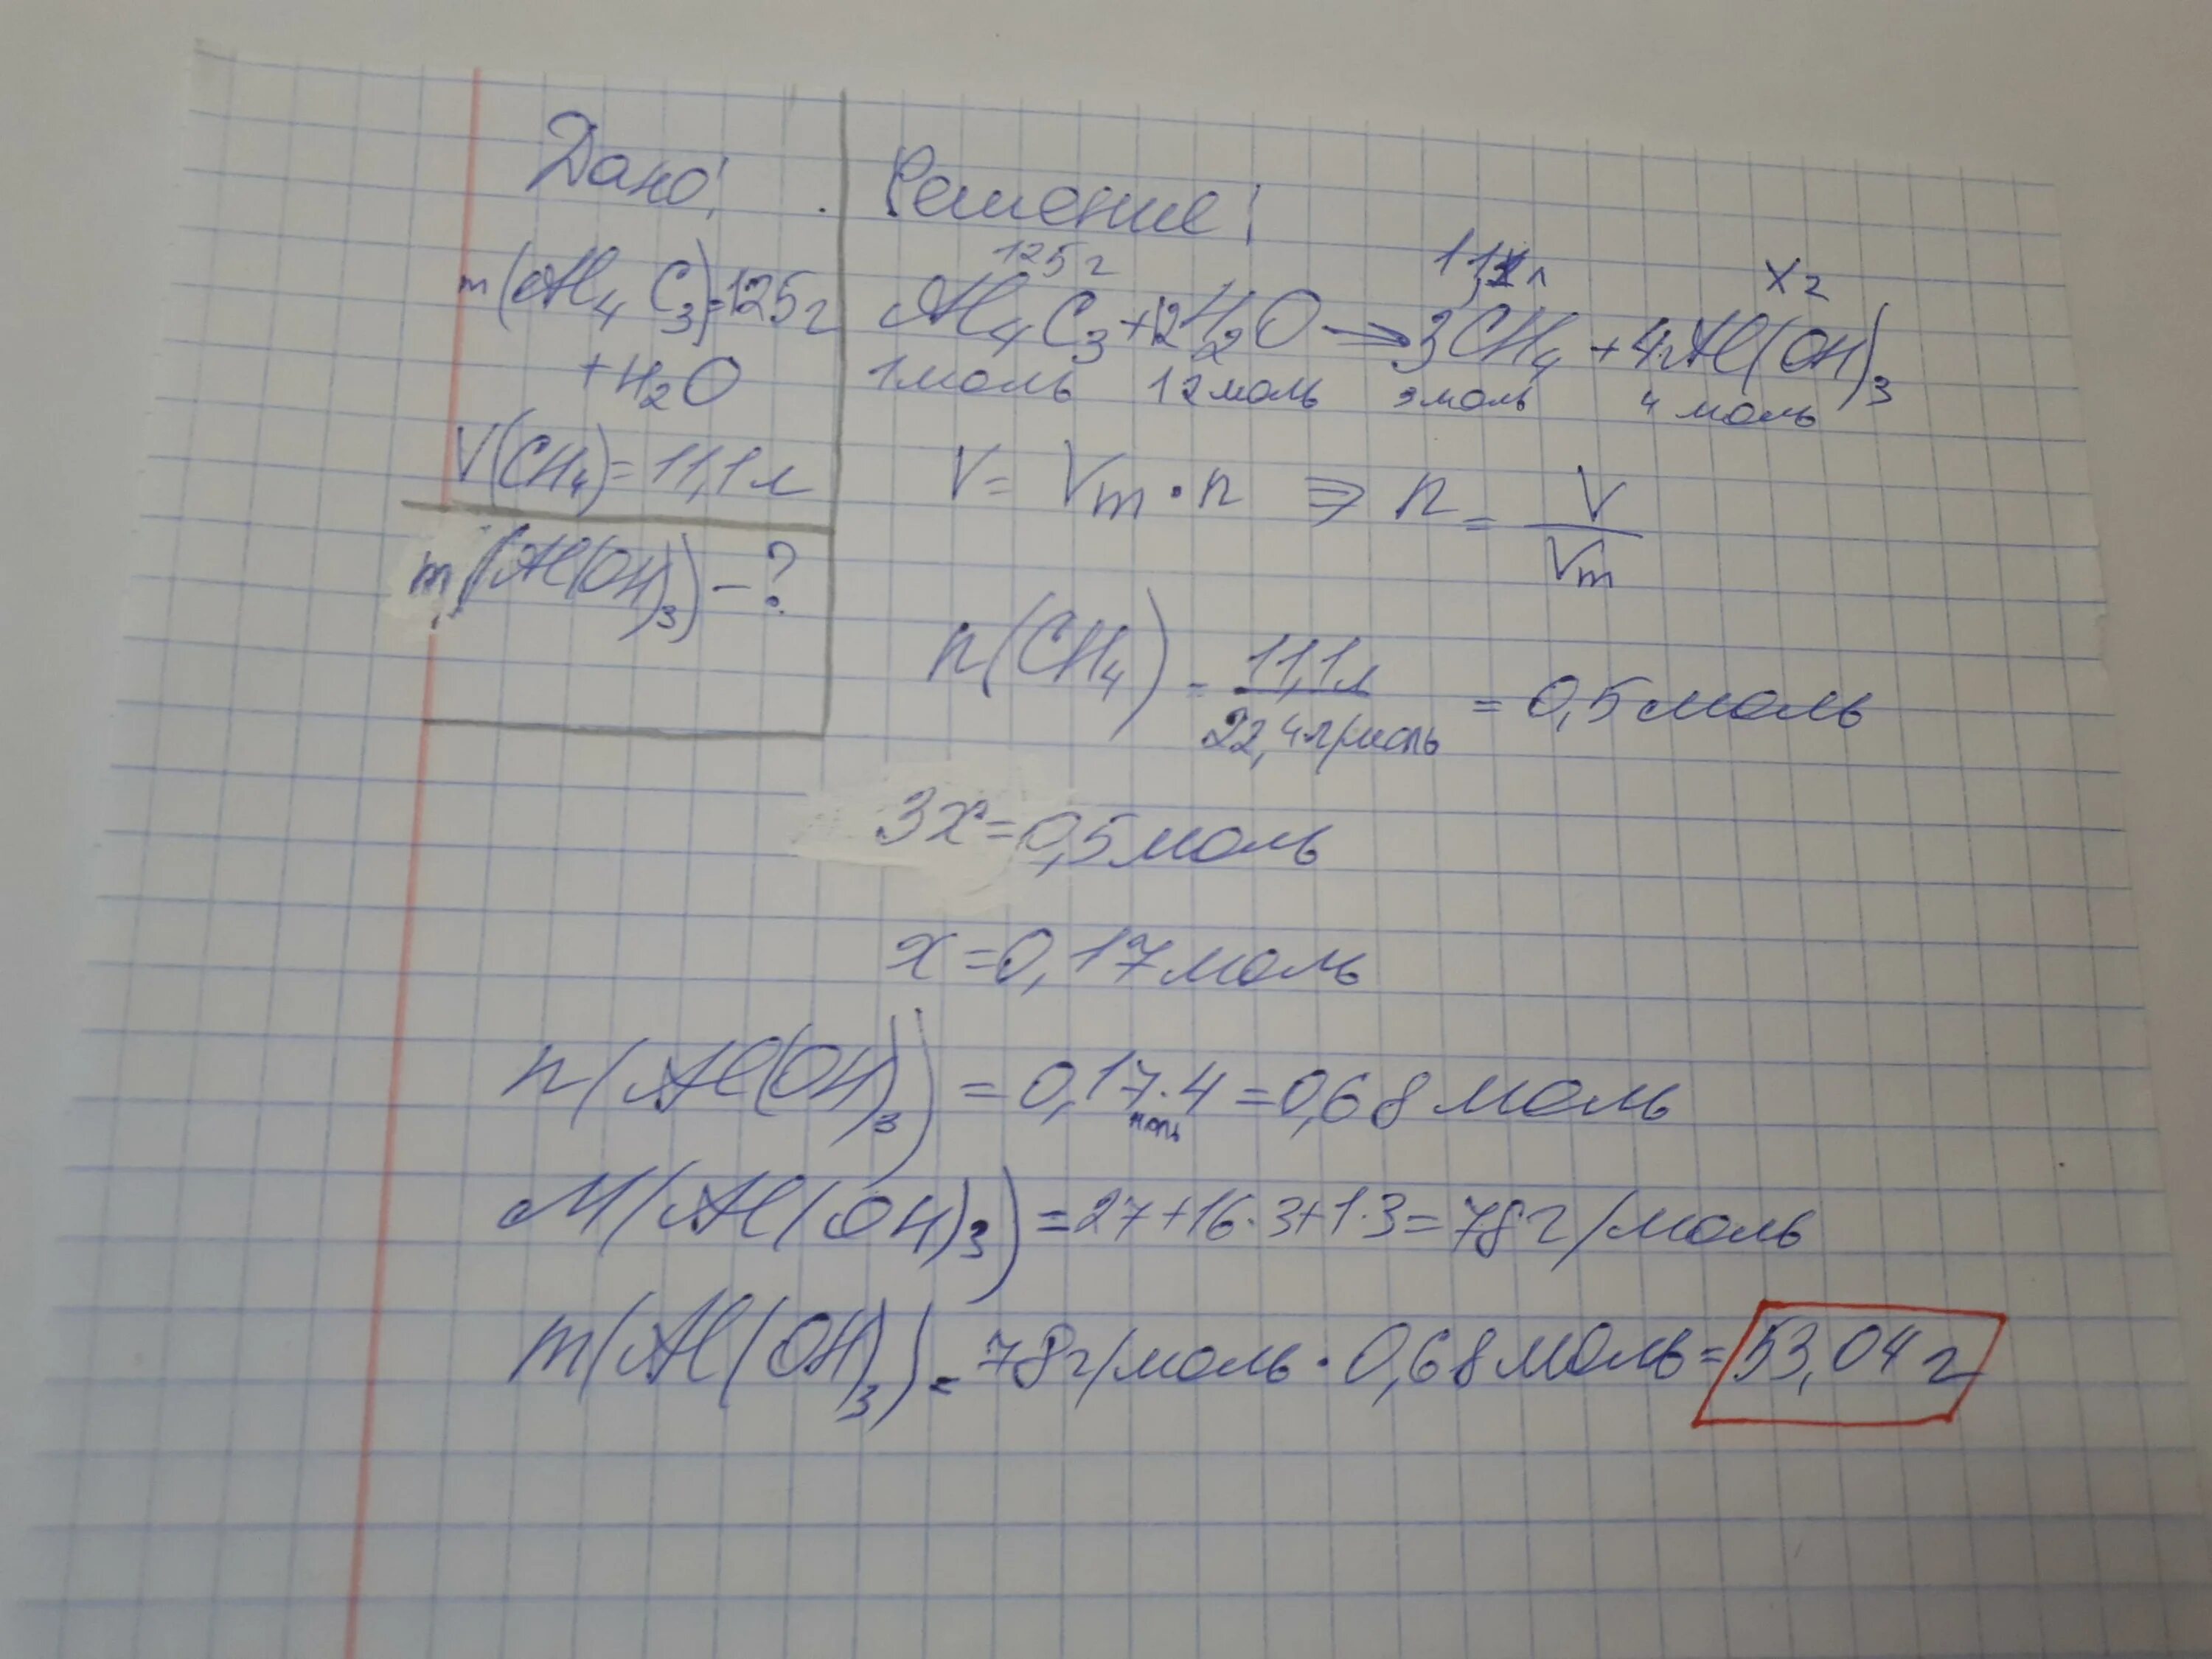 Дано:
m(Al4C3)=125г
+H2O
V(CH4)=11,1л
m(Al(OH)3)-?
Решение:
125г 11,1л Xг
Al4C3+12H2O→3CH4+4Al(OH)3
1моль 12моль 3моль 4 моль
V= Vm·n ⇒ n = V/Vm
n(CH4) = 11,1л/22,4л/моль = 0,5моль
3x=0,5моль
x=0,17моль
n(Al(OH)3) = 0,17моль·4=0,68моль
M(Al(OH)3)=27+16·3+1·3=78г/моль
m(Al(OH)3)=78г/моль·0,68моль=53,04г